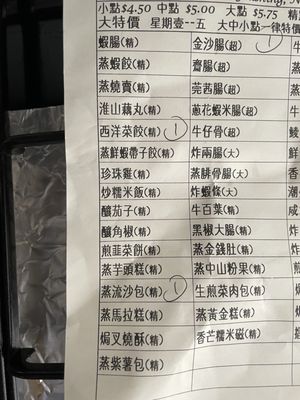 小點$4.50 中點 $5.00 大點 $5.75 精
大特價 星期壹一五 大中小點一律特價
蝦腸(精) 金沙腸(超) 1
蒸蝦餃(精) 齋腸(超)
蒸燒賣(精) 莞茜腸(超)
淮山藕丸(精) 蔥花蝦米腸(超)
西洋菜餃(精) 1 牛仔骨(超)
蒸鮮蝦帶子餃(精) 炸兩腸(大)
珍珠雞(精) 蒸腓骨腸(大)
炒糯米飯(精) 炸蝦條(大)
釀茄子(精) 牛百葉(精)
釀角椒(精) 黑椒大腸(精)
煎韮菜餅(精) 蒸金錢肚(精)
蒸芋頭糕(精) 蒸中山粉果(精)
蒸流沙包(精) 1 生煎菜肉包(精)
蒸馬拉糕(精) 蒸黃金糕(精)
焗叉燒酥(精) 香芒糯米磁(精)
蒸紫薯包(精)